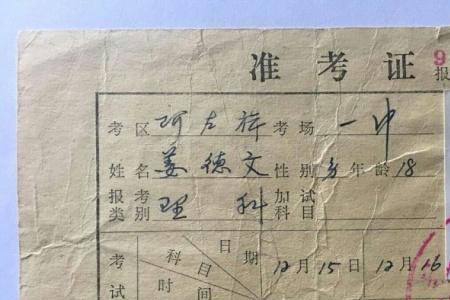 准考证 9
报
考区 阿左旗 考场 一中
姓名 姜德文 性别 男 年龄 18
报考类别 理科 加试科目
考试 科目 时间 日期 12月15日 12月16